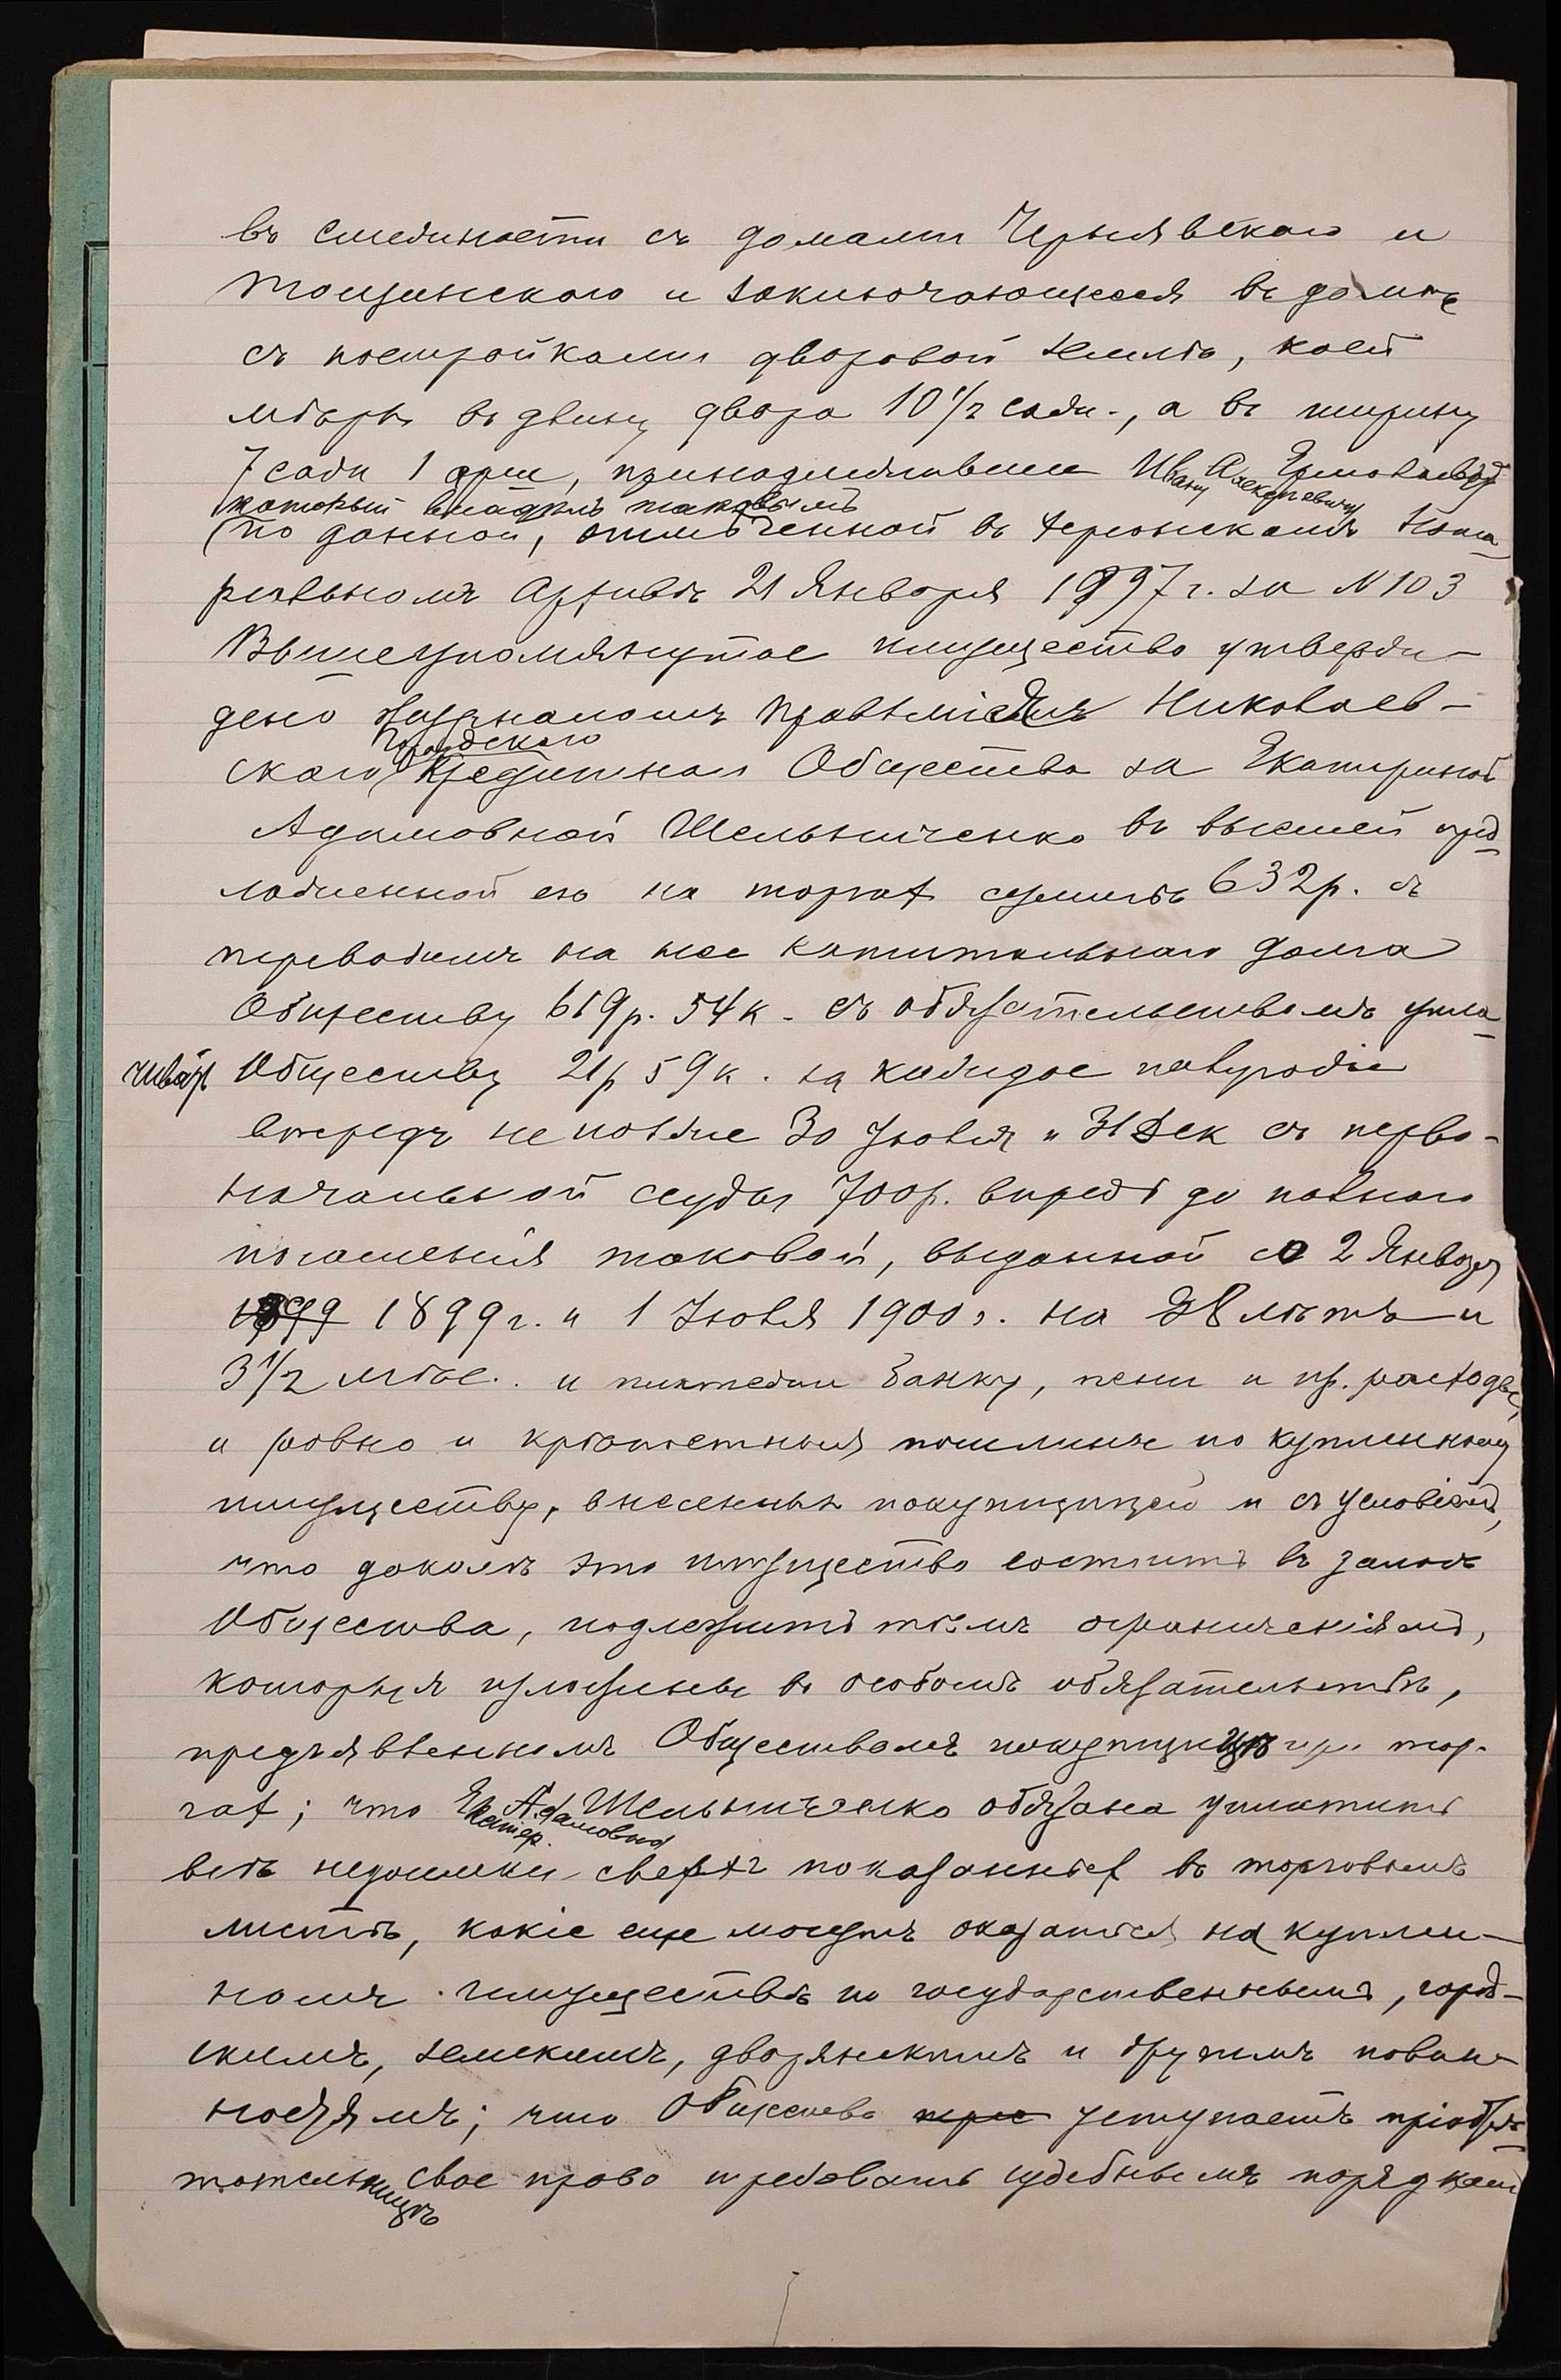 въ смежности съ домами Чернявскаго и
Тощинскаго и заключающееся въ домѣ
съ постройками дворовой землѣ, коей
мѣры въ длину двора 10 1/2 саж., а въ ширину
7 саж 1 арш, принадлежавшее Ивану Алексѣевичу Ермолаеву
который владѣлъ таковымъ
по данной, отмѣченной въ Херсонскомъ Нота-
ріальномъ Архивѣ 21 Января 1897 г. за N 103
Вышеупомянутое имущество утверж-
дено Правленіемъ Николаев-
скаго Городского Кредитнаго Общества за Екатериной
Адамовной Шельниченко въ высшей пред
ложенной ею на торгах суммѣ 632 р. съ
переводомъ на нее капитальнаго долга
Обществу 619 р. 54 к. съ обязательствомъ упла-
чивать Обществу 21 р 59 к. за каждое полугодіе
впередъ не позже 30 Іюня и 31 Дек съ перво-
начальной ссуды 700 р. впредь до полнаго
погашенія таковой, выданной съ 2 Января
1899 1899 г. и 1 Іюля 1900 г. на 28 лѣтъ и
3 1/2 мѣс. и платежи банку, пени и пр. расходы,
и равно и крѣпостныя пошлины по купленному
имуществу, внесены покупщицей и съ условіемъ,
что доколѣ это имущество состоитъ въ залогѣ
Общества, подлежитъ тѣмъ ограниченіямъ,
которыя изложены въ особомъ обязательствѣ,
предъявленномъ Обществомъ покупщицѣ при тор-
гах; что Екатер. Адамовна Шельниченко обязана уплатить
всѣ недоимки сверхъ показанныхъ въ торговомъ
листѣ, какіе еще могутъ оказаться на куплен-
номъ имуществѣ по государственнымъ, город-
скимъ, земскимъ, дворянскимъ и другимъ повин-
ностямъ; что Общество уступаетъ пріобрѣ-
тательницѣ свое право требовать судебнымъ порядкомъ